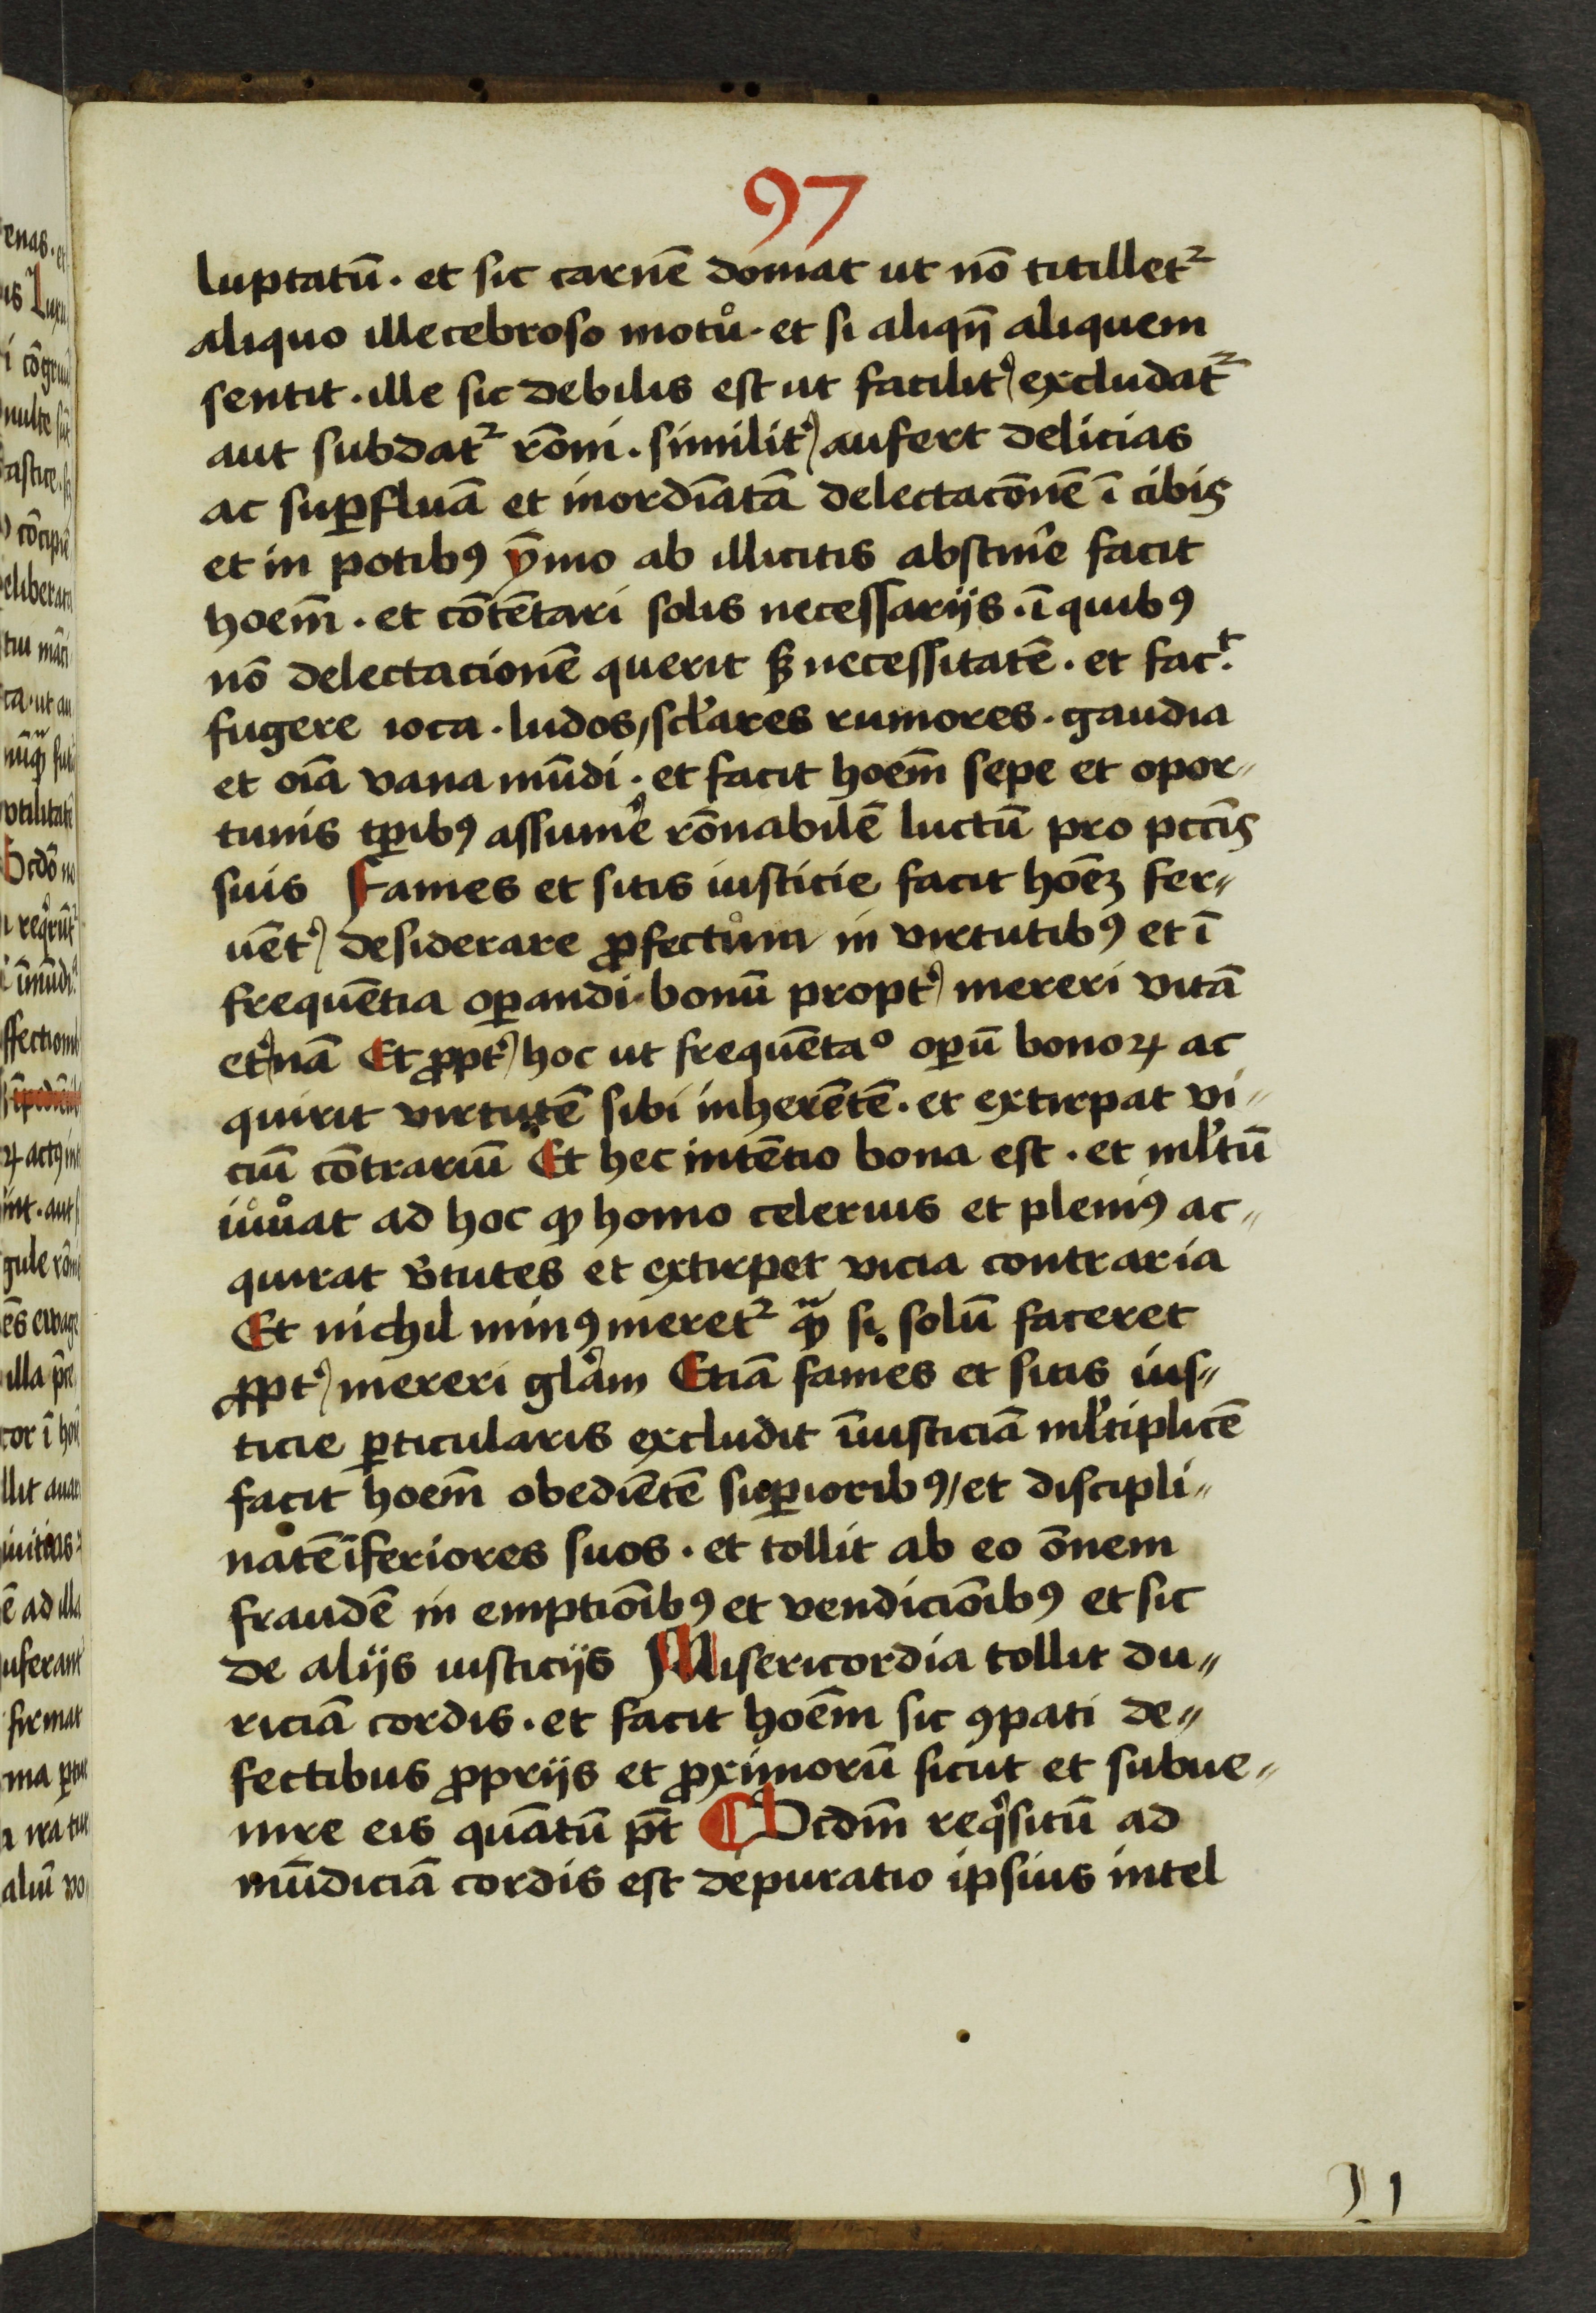 97
luptatū · et sic carnē domat ut nō titilletᷣ
aliquo illecebroso motů · et si aliqn̄ aliquem
sentit · ille sic debilis est ut facilit᾽ excludatᷣ
aut subdatᷣ rōni · similit᾽ aufert delicias
ac suꝑfluā et inordīatā delectacōnē ī cibis
et in potibꝰ ȳmo ab illicitis abstin̄e facit
hoēm · et cōtētari solis necessarijs · ī quibꝰ
nō delectacionē querit sꝫ necessitatē · et facͭ·
fugere ioca · ludos / scl̓ares rumores · gaudia
et oīa vana mūdi · et facit hoēm sepe et opor„
tunis tꝑibꝰ assum̓e rōnabilē luctū pro pctīs
suis Fames et sitis iusticie facit hoēꝫ fer„
uēt᾽ desiderare ꝓfectům in virtutibꝰ et ī
frequētia oꝑandi · bonū propt᾽ mereri vitā
et᾽nā Et ꝓpt᾽ hoc ut frequētaº oꝑū bonoꝝ ac
quirit virtutē sibi inherētē · et extirpat vi„
ciū cōtrariū Et hec intētio bona est · et ml̓tū
iůůat ad hoc ꝙ homo celerius et pleniꝰ ac„
quirat v̓tutes et extirpet vicia contraria
Et nichil minꝰ meretᷣ qᷓꝫ si solū faceret
ꝓpt᾽ mereri gl̓am Etiā fames et sitis ius„
ticie ꝑticularis excludit īiusticiā ml̓tiplicē
facit hoēm obediētē suꝑioribꝰ / et discipli„
natē īferiores suos · et tollit ab eo ōnem
fraudē in emptiōibꝰ et vendiciōibꝰ et sic
de alijs iusticijs Misericordia tollit du„
riciā cordis · et facit hoēm sic ꝯpati de„
fectibus ꝓprijs et ꝓximorū sicut et subue„
nire eis quātū pōt ¶ Scdm̄ reqͥsitū ad
mūdiciā cordis est depuratio ipsius intel